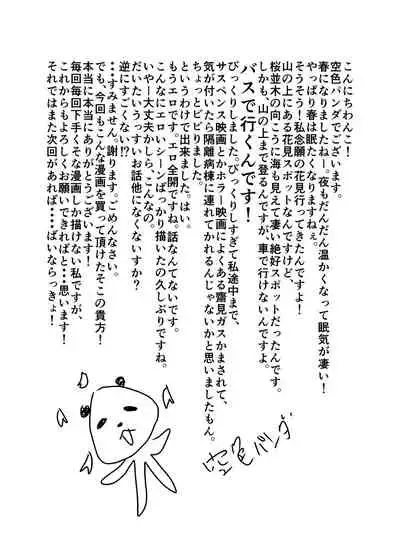 こんにちわんこ!
空色パンダでございます。
春になりましたねー。夜もだんだん温かくなって眠気が凄い!
やっぱり春は眠たくなりますねぇ。
そうそう!私念願の花見行ってきたんですよ!
山の上にある花見スポットなんですけど、
桜並木の向こうに海も見えて凄い絶好スポットだったんです。
しかも、山の上まで登るんですが、車で行けないんですよ。
バスで行くんです!
びっくりしました。びっくりしすぎて私途中まで、
サスペンス映画とかホラー映画によくある齋見ガスかまされて、
気が付いたら隔離病棟に連れてかれるんじゃないかと思いましたもん。
ちょっとビビりました。
というわけで出来ました。はい。
もうエロです。エロ全開ですね。話なんてないです。
こんなにエロいシーンばっかり描いたの久しぶりですね。
いやー大丈夫かしら、こんなの。
だいたいうっすいお話他になくないすか?
逆にすごくない!?
・・すみません。謝ります。ごめんなさい。
でも、今回もこんな漫画を買って頂けたそこの貴方!
本当に本当にありがとうございます!
毎回毎回下手くそな漫画しか描けない私ですが、
これからもよろしくお願いできればと・・思います!
それではまた次回があれば・・・ばいならっきょ!
空色パンダ